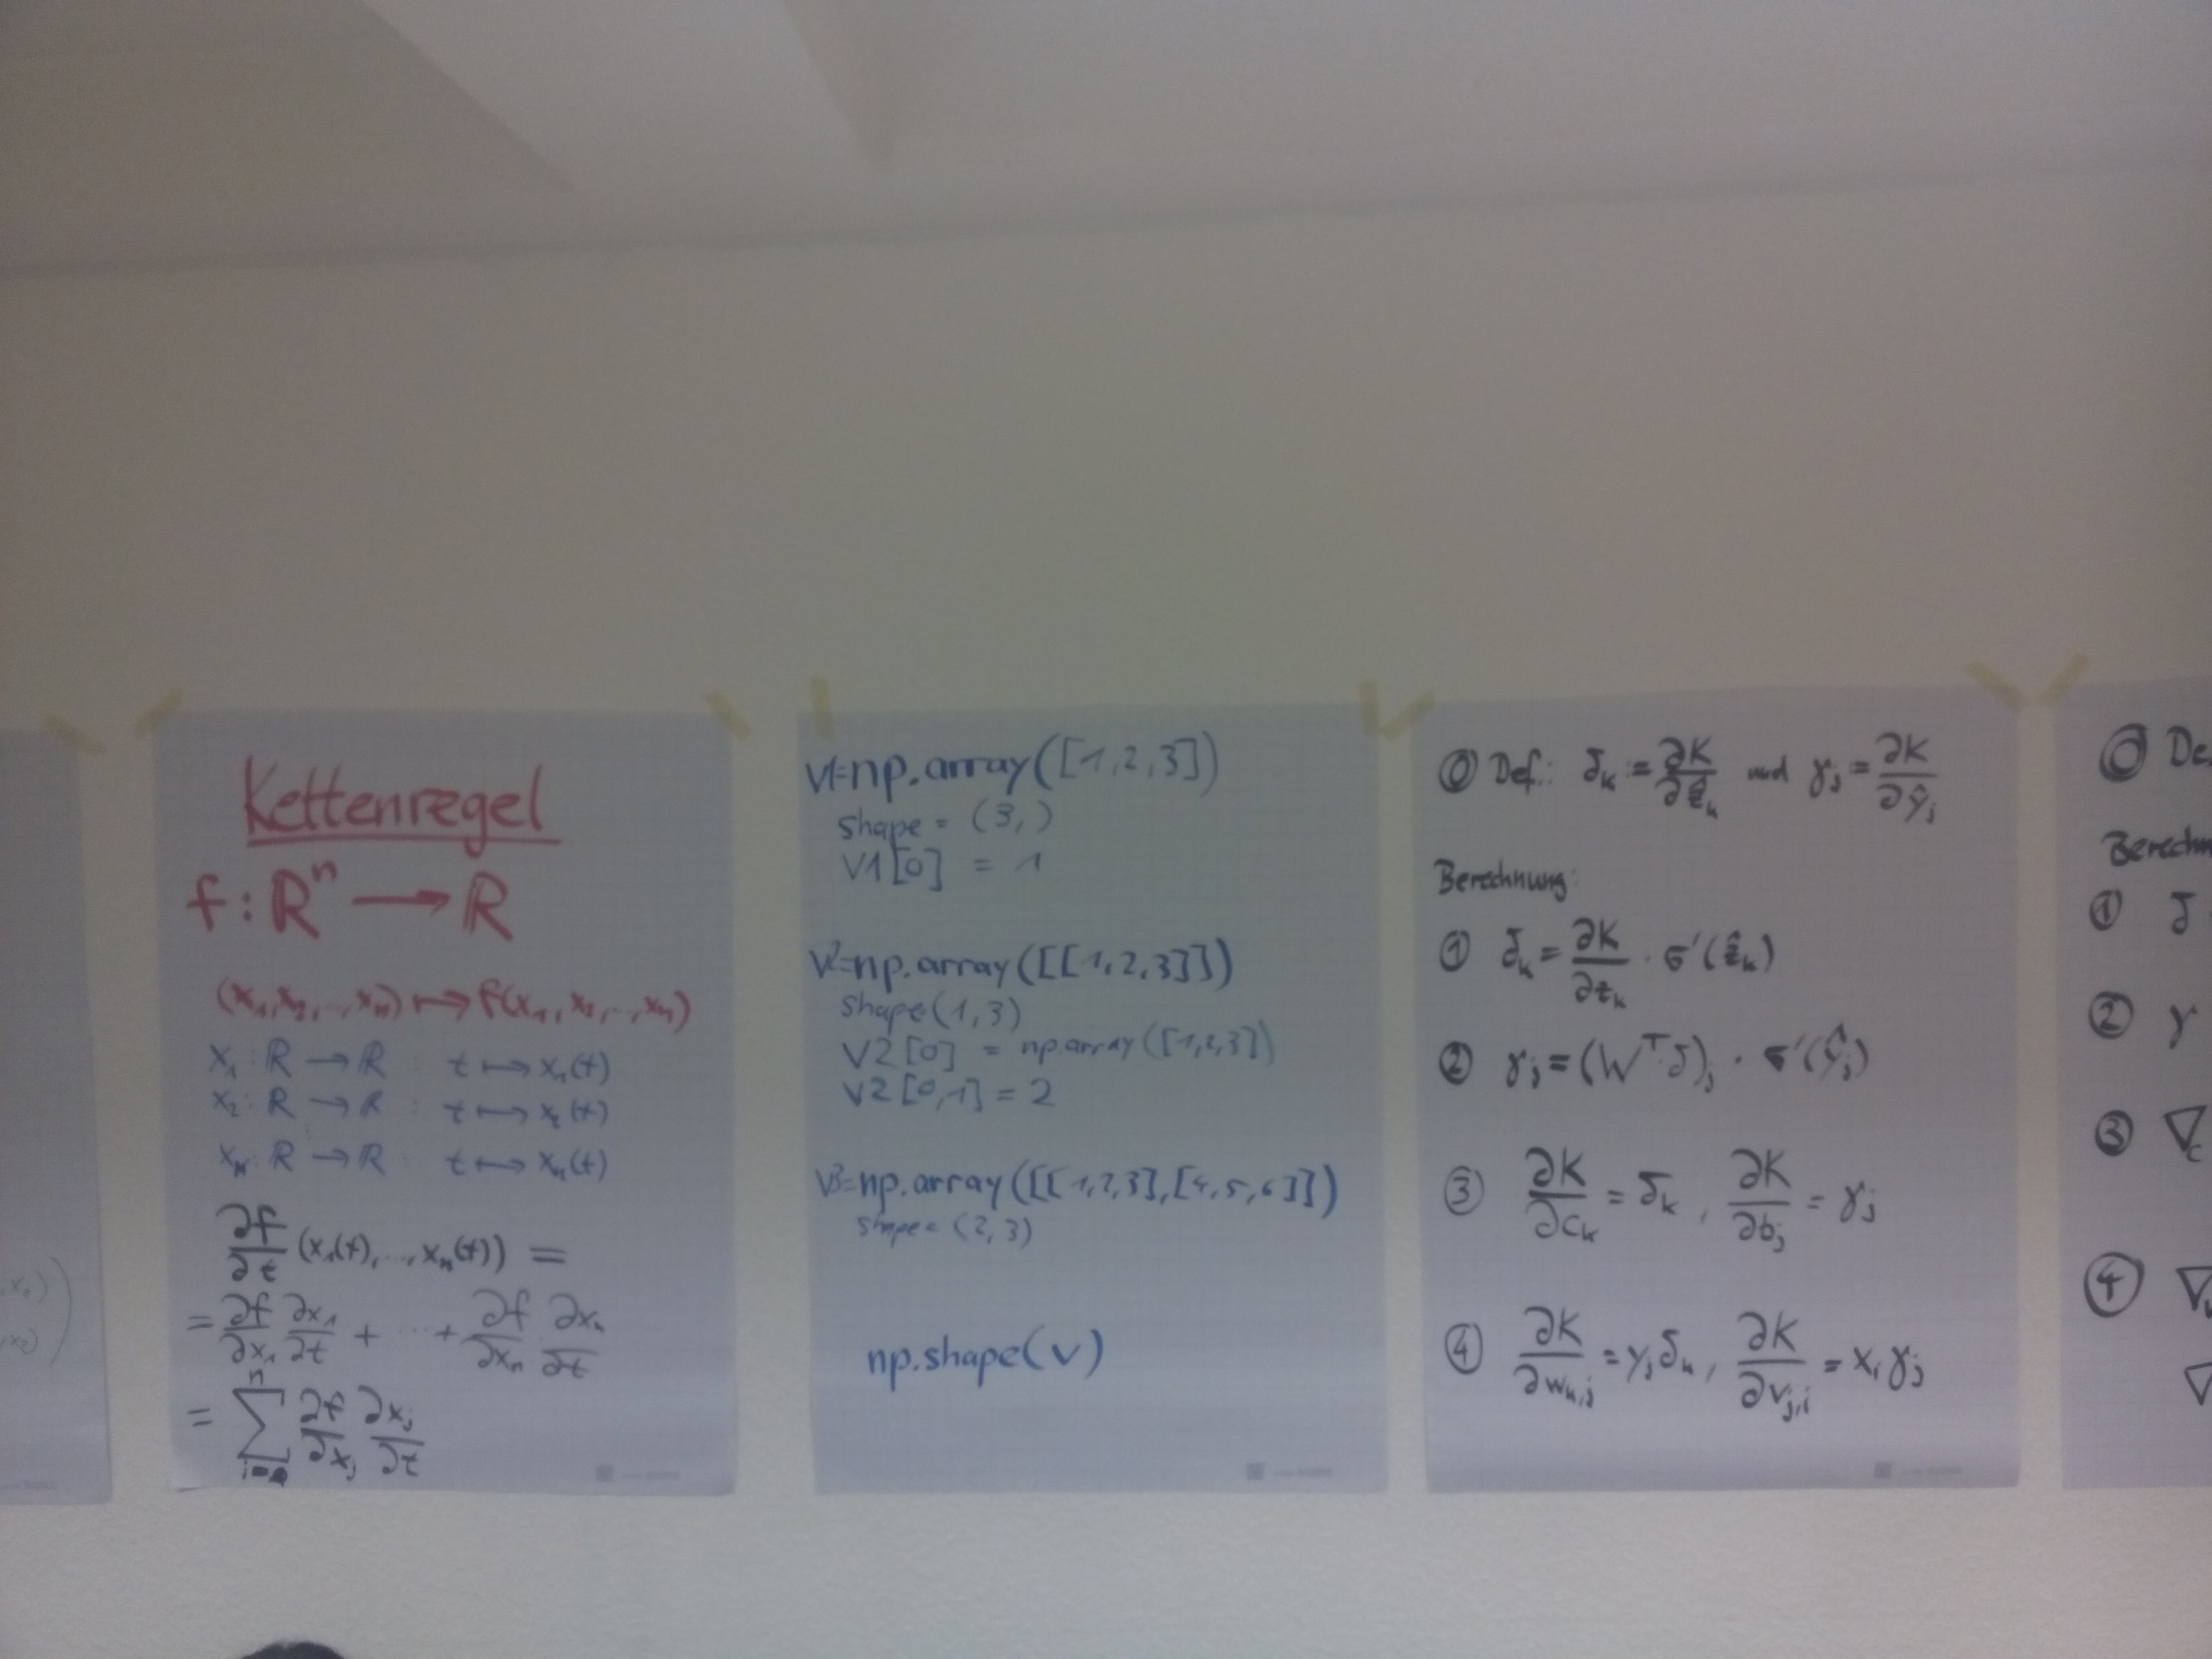 , x₂)
, x₂)
Kettenregel
f : ℝⁿ → ℝ
(x₁, x₂, .., xₙ) ↦ f(x₁, x₂, .., xₙ)
x₁ : ℝ → ℝ : t ↦ x₁(t)
x₂ : ℝ → ℝ : t ↦ x₂(t)
xₙ : ℝ → ℝ : t ↦ xₙ(t)
∂f/∂t (x₁(t), ..., xₙ(t)) =
= ∂f/∂x₁ ∂x₁/∂t + ... + ∂f/∂xₙ ∂xₙ/∂t
= ∑ⁿ ∂f/∂xⱼ ∂xⱼ/∂t
v1=np.array([1,2,3])
shape = (3,)
V1[0] = 1
v2=np.array([[1,2,3]])
shape(1,3)
V2[0] = np.array([1,2,3])
V2[0,1] = 2
v3=np.array([[1,2,3],[4,5,6]])
shape = (2,3)
np.shape(v)
⓪ Def.: δₖ := ∂K/∂ẑₖ und γⱼ = ∂K/∂ŷⱼ
Berechnung:
① δₖ = ∂K/∂zₖ · σ'(ẑₖ)
② γⱼ = (Wᵀ·δ)ⱼ · σ'(ŷⱼ)
③ ∂K/∂cₖ = δₖ , ∂K/∂bⱼ = γⱼ
④ ∂K/∂wₖ,ⱼ = yⱼ δₖ , ∂K/∂vⱼ,ᵢ = xᵢ γⱼ
⓪ De
Berechn
① δ
② γ
③ ∇c
④ ∇
∇